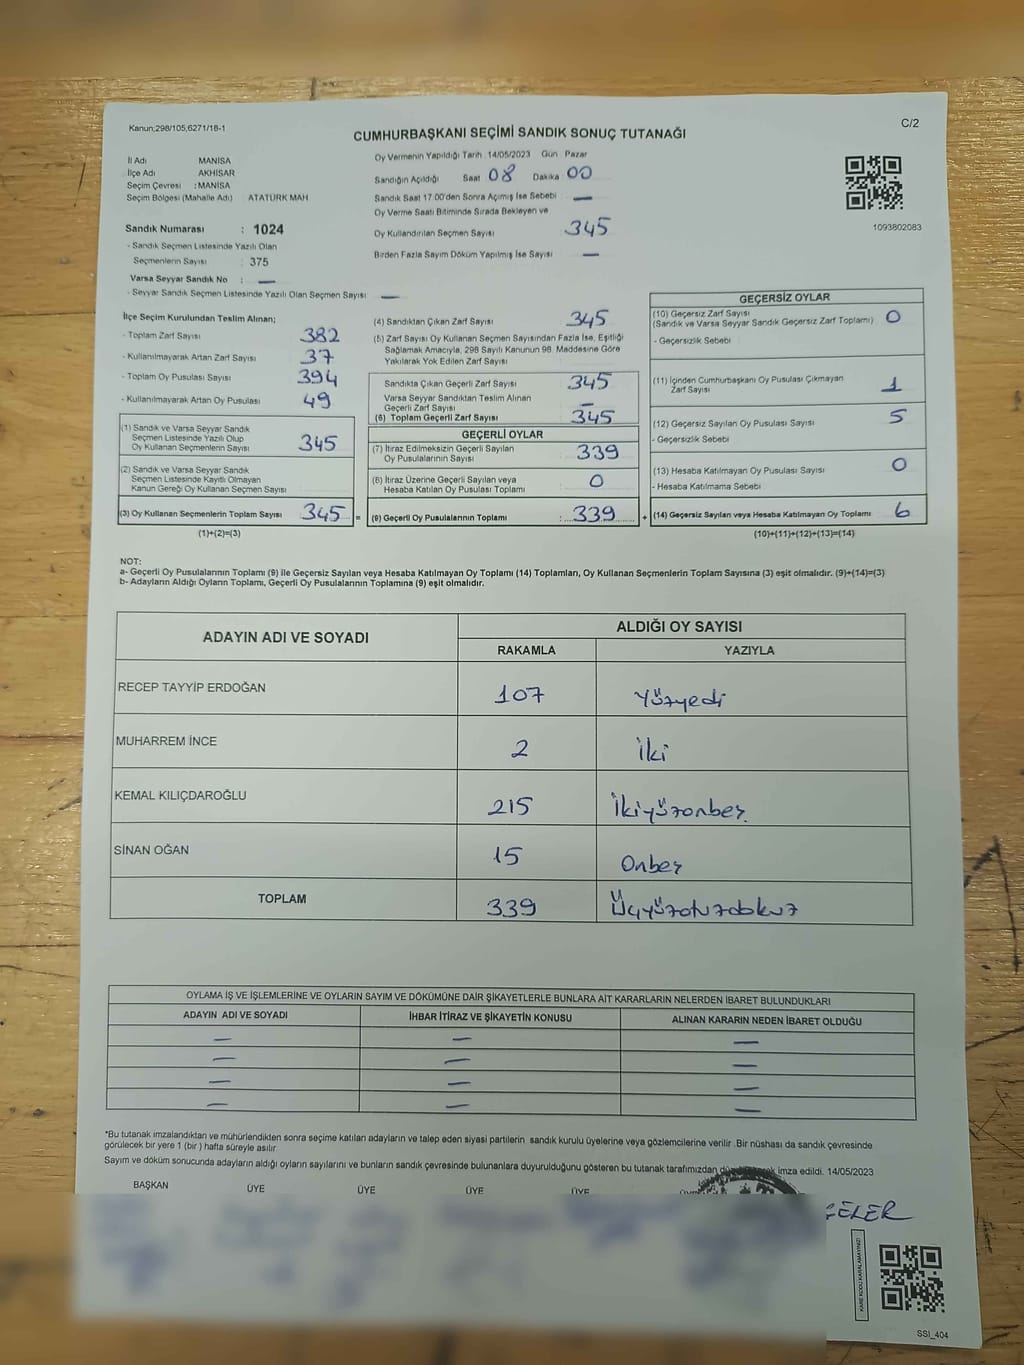 Kanun;298/105,6271/18-1
C/2
CUMHURBAŞKANI SEÇİMİ SANDIK SONUÇ TUTANAĞI
İl Adı MANİSA
İlçe Adı AKHİSAR
Seçim Çevresi :MANİSA
Seçim Bölgesi (Mahalle Adı) ATATÜRK MAH.
Sandık Numarası : 1024
- Sandık Seçmen Listesinde Yazılı Olan
Seçmenlerin Sayısı : 375
Varsa Seyyar Sandık No : —
- Seyyar Sandık Seçmen Listesinde Yazılı Olan Seçmen Sayısı —
Oy Vermenin Yapıldığı Tarih 14/05/2023 Gün Pazar
Sandığın Açıldığı Saat 08 Dakika 00
Sandık Saat 17.00'den Sonra Açımış İse Sebebi —
Oy Verme Saati Bitiminde Sırada Bekleyen ve
Oy Kullandırılan Seçmen Sayısı 345
Birden Fazla Sayım Döküm Yapılmış İse Sayısı —
1093802083
İlçe Seçim Kurulundan Teslim Alınan;
- Toplam Zarf Sayısı 382
- Kullanılmayarak Artan Zarf Sayısı 37
- Toplam Oy Pusulası Sayısı 394
- Kullanılmayarak Artan Oy Pusulası 49
(1) Sandık ve Varsa Seyyar Sandık
Seçmen Listesinde Yazılı Olup
Oy Kullanan Seçmenlerin Sayısı 345
(2) Sandık ve Varsa Seyyar Sandık
Seçmen Listesinde Kayıtlı Olmayan
Kanun Gereği Oy Kullanan Seçmen Sayısı
(3) Oy Kullanan Seçmenlerin Toplam Sayısı 345 =
(1)+(2)=(3)
(4) Sandıktan Çıkan Zarf Sayısı 345
(5) Zarf Sayısı Oy Kullanan Seçmen Sayısından Fazla İse, Eşitliği
Sağlamak Amacıyla, 298 Sayılı Kanunun 98. Maddesine Göre
Yakılarak Yok Edilen Zarf Sayısı
Sandıkta Çıkan Geçerli Zarf Sayısı 345
Varsa Seyyar Sandıktan Teslim Alınan
Geçerli Zarf Sayısı —
(6) Toplam Geçerli Zarf Sayısı 345
GEÇERLİ OYLAR
(7) İtiraz Edilmeksizin Geçerli Sayılan
Oy Pusulalarının Sayısı 339
(8) İtiraz Üzerine Geçerli Sayılan veya
Hesaba Katılan Oy Pusulası Toplamı 0
(9) Geçerli Oy Pusulalarının Toplamı : 339 +
GEÇERSİZ OYLAR
(10) Geçersiz Zarf Sayısı
(Sandık ve Varsa Seyyar Sandık Geçersiz Zarf Toplamı) 0
- Geçersizlik Sebebi
(11) İçinden Cumhurbaşkanı Oy Pusulası Çıkmayan
Zarf Sayısı 1
(12) Geçersiz Sayılan Oy Pusulası Sayısı 5
- Geçersizlik Sebebi
(13) Hesaba Katılmayan Oy Pusulası Sayısı 0
- Hesaba Katılmama Sebebi
(14) Geçersiz Sayılan veya Hesaba Katılmayan Oy Toplamı 6
(10)+(11)+(12)+(13)=(14)
NOT:
a- Geçerli Oy Pusulalarının Toplamı (9) ile Geçersiz Sayılan veya Hesaba Katılmayan Oy Toplamı (14) Toplamları, Oy Kullanan Seçmenlerin Toplam Sayısına (3) eşit olmalıdır. (9)+(14)=(3)
b- Adayların Aldığı Oyların Toplamı, Geçerli Oy Pusulalarının Toplamına (9) eşit olmalıdır.
ADAYIN ADI VE SOYADI ALDIĞI OY SAYISI
RAKAMLA YAZIYLA
RECEP TAYYİP ERDOĞAN 107 Yüzyedi
MUHARREM İNCE 2 İki
KEMAL KILIÇDAROĞLU 215 İkiyüzonbeş
SİNAN OĞAN 15 Onbeş
TOPLAM 339 Üçyüzotuzdokuz
OYLAMA İŞ VE İŞLEMLERİNE VE OYLARIN SAYIM VE DÖKÜMÜNE DAİR ŞİKAYETLERLE BUNLARA AİT KARARLARIN NELERDEN İBARET BULUNDUKLARI
ADAYIN ADI VE SOYADI İHBAR İTİRAZ VE ŞİKAYETİN KONUSU ALINAN KARARIN NEDEN İBARET OLDUĞU
— — —
— — —
— — —
— — —
*Bu tutanak imzalandıktan ve mühürlendikten sonra seçime katılan adayların ve talep eden siyasi partilerin sandık kurulu üyelerine veya gözlemcilerine verilir. Bir nüshası da sandık çevresinde
görülecek bir yere 1 (bir) hafta süreyle asılır.
Sayım ve döküm sonucunda adayların aldığı oyların sayılarını ve bunların sandık çevresinde bulunanlara duyurulduğunu gösteren bu tutanak tarafımızdan imza edildi. 14/05/2023
BAŞKAN ÜYE ÜYE ÜYE ÜYE
KARE KODU KARALAMAYINIZ!
SSI_404